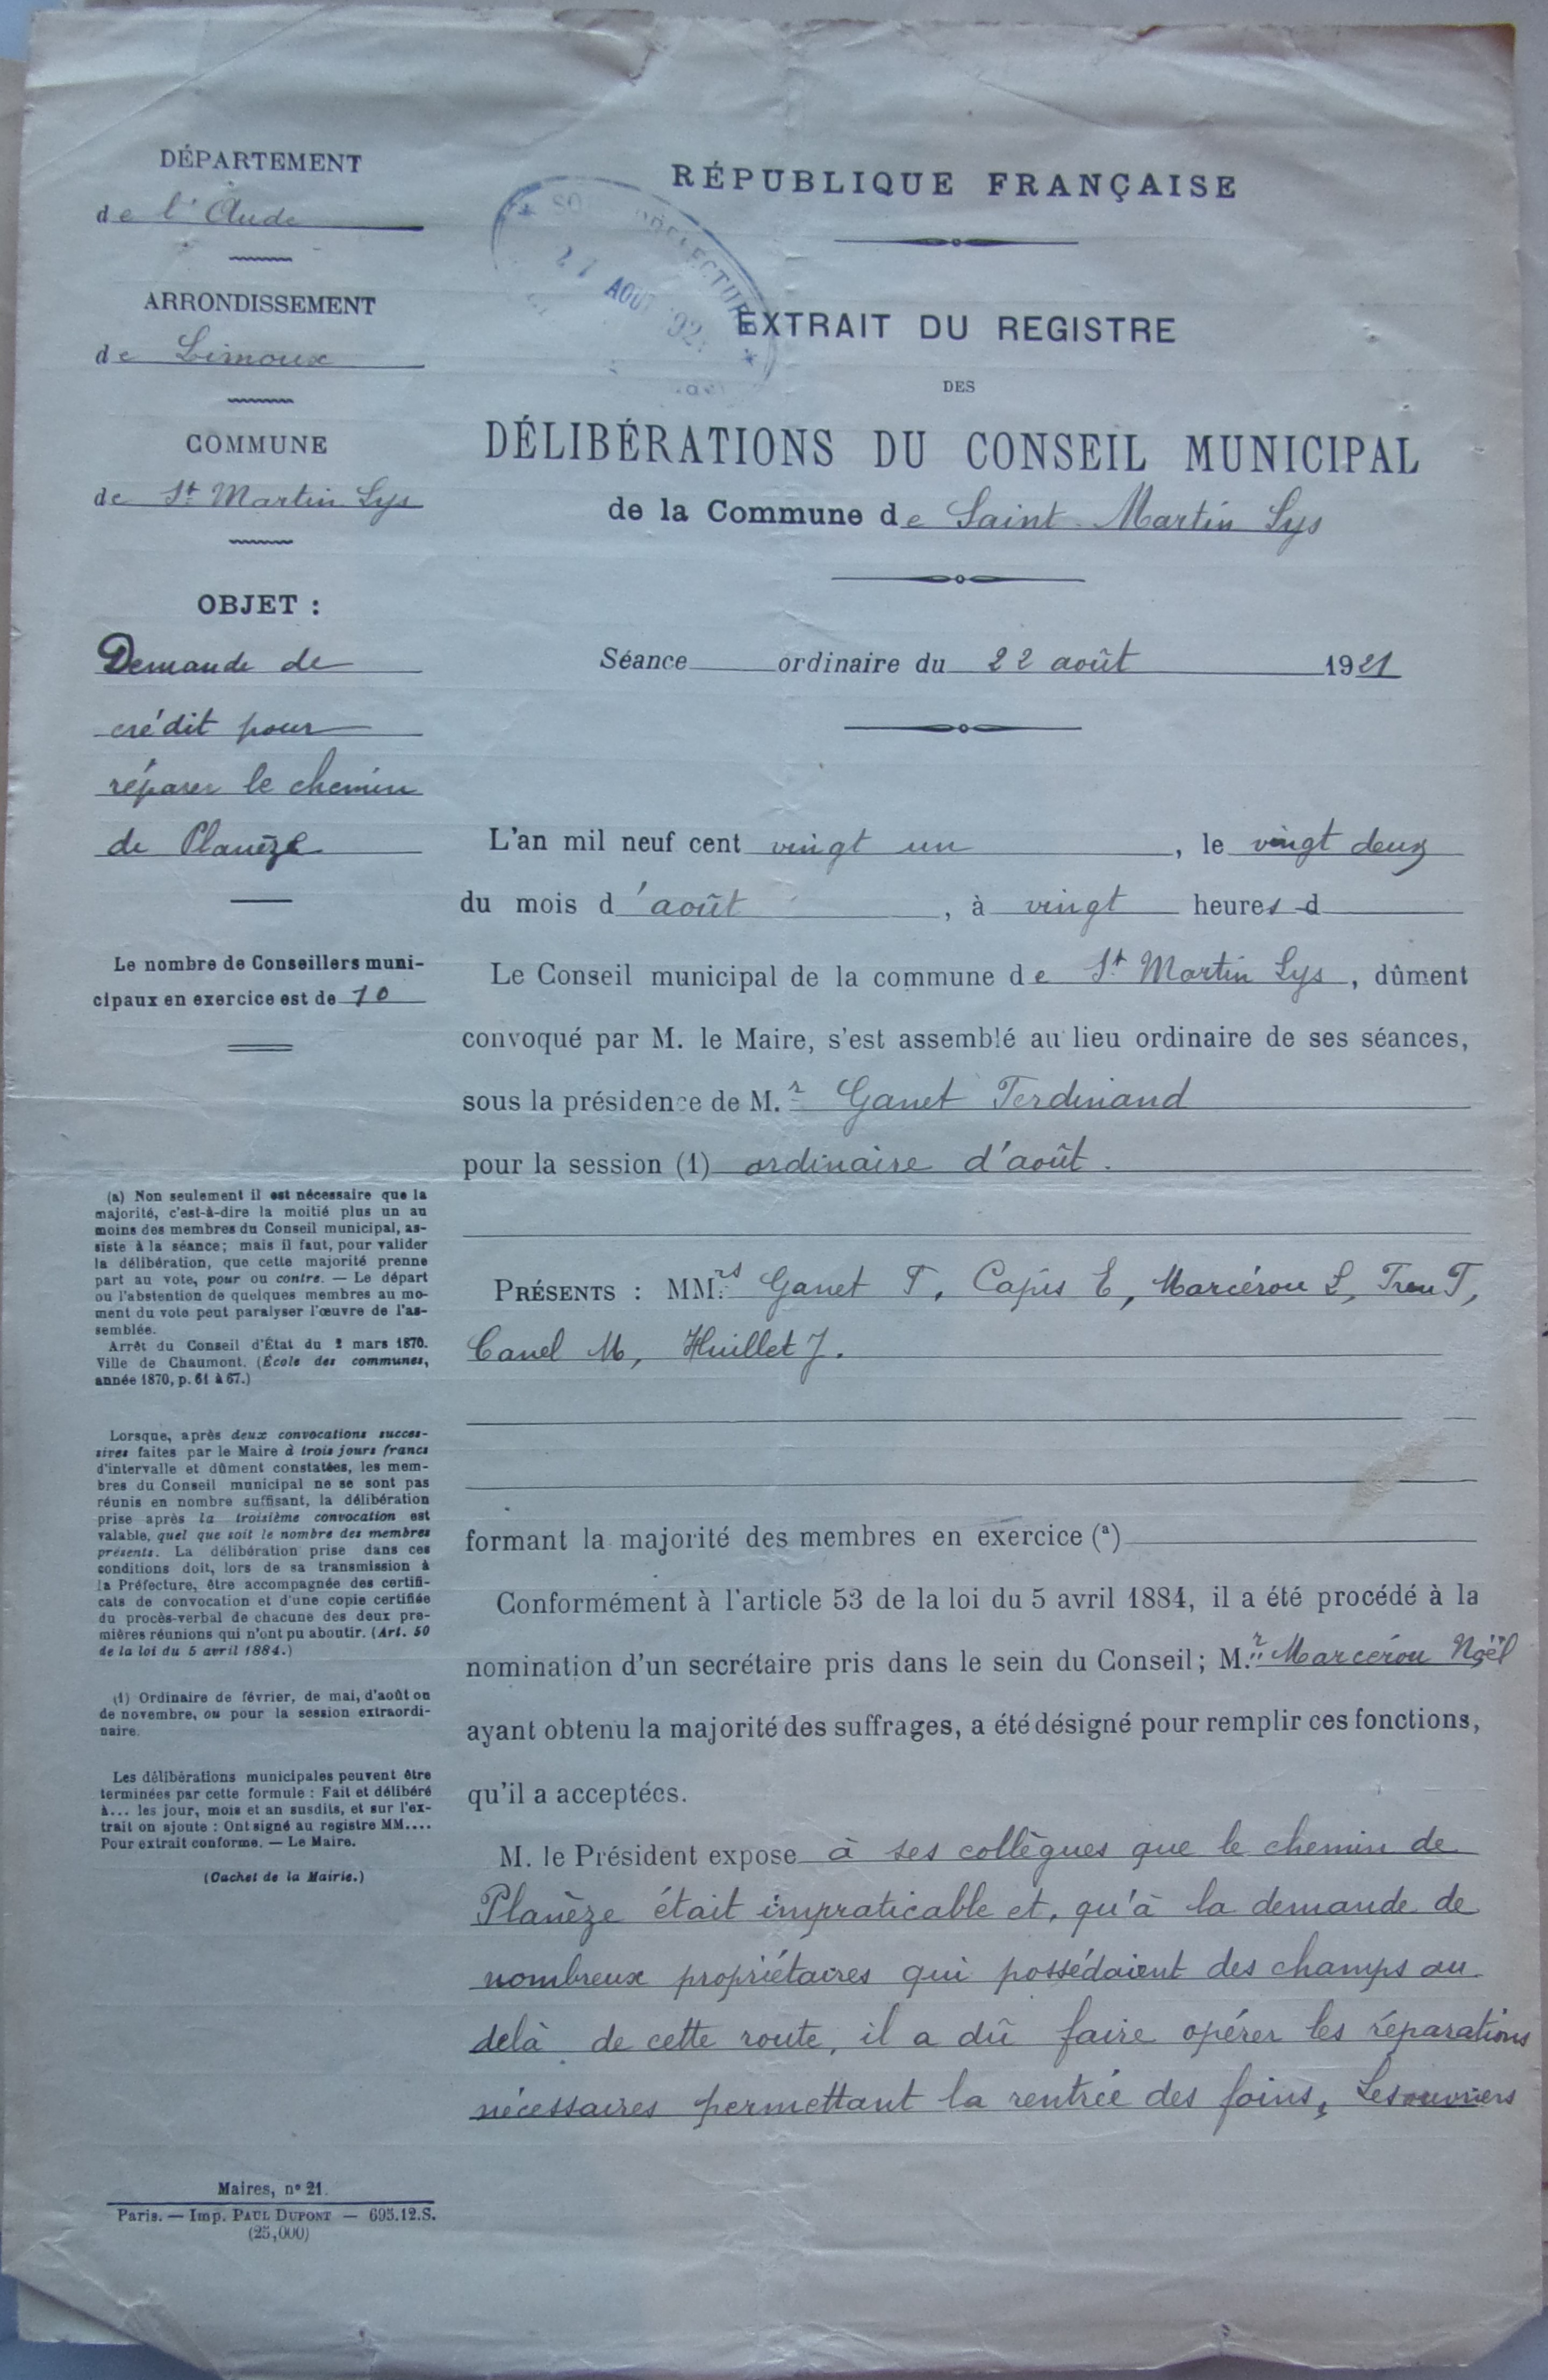 DÉPARTEMENT
de l'Aude
ARRONDISSEMENT
de Limoux
COMMUNE
de St Martin Lys
OBJET :
Demande de
crédit pour
réparer le chemin
de Planèze
Le nombre de Conseillers muni-
cipaux en exercice est de 10
(a) Non seulement il est nécessaire que la
majorité, c'est-à-dire la moitié plus un au
moins des membres du Conseil municipal, as-
siste à la séance; mais il faut, pour valider
la délibération, que cette majorité prenne
part au vote, pour ou contre. — Le départ
ou l'abstention de quelques membres au mo-
ment du vote peut paralyser l'œuvre de l'as-
semblée.
Arrêt du Conseil d'État du 2 mars 1870.
Ville de Chaumont. (École des communes,
année 1870, p. 61 à 67.)
Lorsque, après deux convocations succes-
sives faites par le Maire à trois jours francs
d'intervalle et dûment constatées, les mem-
bres du Conseil municipal ne se sont pas
réunis en nombre suffisant, la délibération
prise après la troisième convocation est
valable, quel que soit le nombre des membres
présents. La délibération prise dans ces
conditions doit, lors de sa transmission à
la Préfecture, être accompagnée des certifi-
cats de convocation et d'une copie certifiée
du procès-verbal de chacune des deux pre-
mières réunions qui n'ont pu aboutir. (Art. 50
de la loi du 5 avril 1884.)
(1) Ordinaire de février, de mai, d'août ou
de novembre, ou pour la session extraordi-
naire.
Les délibérations municipales peuvent être
terminées par cette formule : Fait et délibéré
à... les jour, mois et an susdits, et sur l'ex-
trait on ajoute : Ont signé au registre MM....
Pour extrait conforme. — Le Maire.
(Cachet de la Mairie.)
Maires, n° 21.
Paris. — Imp. PAUL DUPONT — 695.12.S.
(25,000)
RÉPUBLIQUE FRANÇAISE
27 AOUT 192
EXTRAIT DU REGISTRE
DES
DÉLIBÉRATIONS DU CONSEIL MUNICIPAL
de la Commune de Saint Martin Lys
Séance ordinaire du 22 août 1921
L'an mil neuf cent vingt un, le vingt deux
du mois d'août, à vingt heures d
Le Conseil municipal de la commune de St Martin Lys, dûment
convoqué par M. le Maire, s'est assemblé au lieu ordinaire de ses séances,
sous la présidence de M.r Ganet Ferdinand
pour la session (1) ordinaire d'août.
PRÉSENTS : MM.rs Ganet F, Capis E, Marcérou L, Treu T,
Canel M, Huillet J.
formant la majorité des membres en exercice (a)
Conformément à l'article 53 de la loi du 5 avril 1884, il a été procédé à la
nomination d'un secrétaire pris dans le sein du Conseil; M.r Marcérou Noël
ayant obtenu la majorité des suffrages, a été désigné pour remplir ces fonctions,
qu'il a acceptées.
M. le Président expose à ses collègues que le chemin de
Planèze était impraticable et, qu'à la demande de
nombreux propriétaires qui possédaient des champs au
delà de cette route, il a dû faire opérer les réparations
nécessaires permettant la rentrée des foins, Les ouvriers